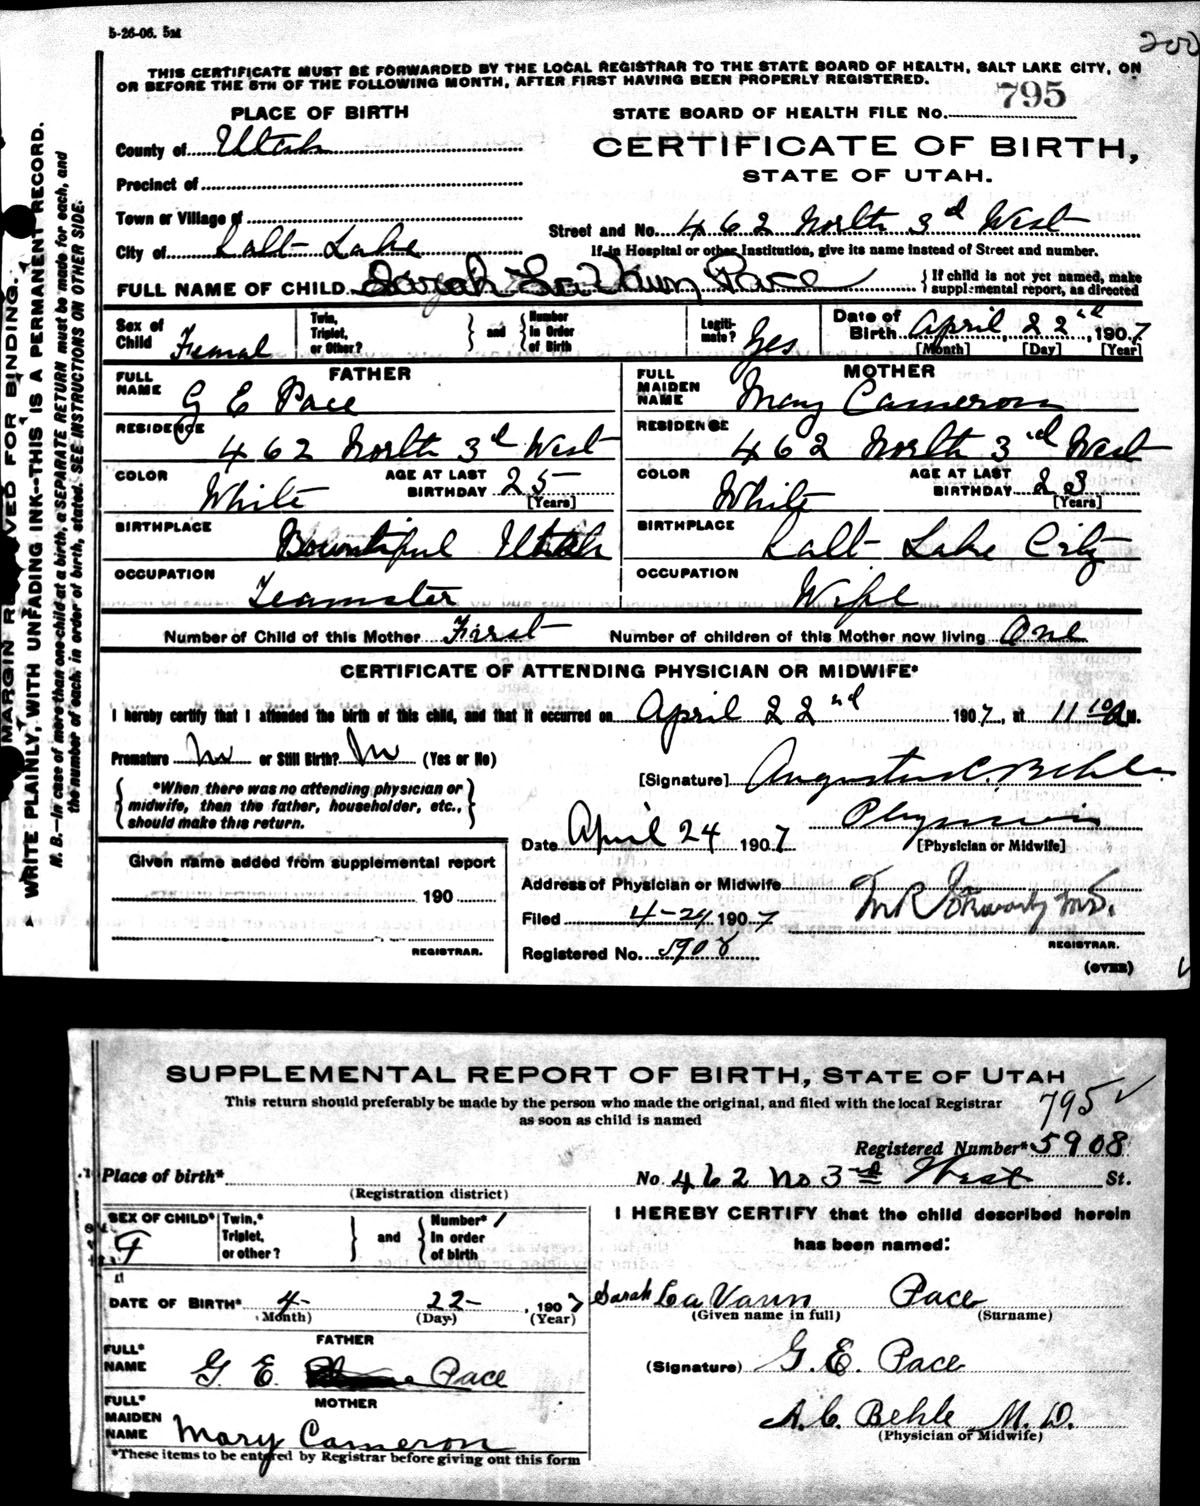 5-26-06. 5M
200
THIS CERTIFICATE MUST BE FORWARDED BY THE LOCAL REGISTRAR TO THE STATE BOARD OF HEALTH, SALT LAKE CITY, ON
OR BEFORE THE 5TH OF THE FOLLOWING MONTH, AFTER FIRST HAVING BEEN PROPERLY REGISTERED.
795
PLACE OF BIRTH
STATE BOARD OF HEALTH FILE NO.
County of Utah
CERTIFICATE OF BIRTH,
STATE OF UTAH.
Precinct of
Town or Village of
Street and No. 462 North 3d West
City of Salt Lake
If in Hospital or other Institution, give its name instead of Street and number.
FULL NAME OF CHILD Sarah LaVaun Pace { If child is not yet named, make
supplemental report, as directed
Sex of Child Femal
Twin, Triplet, or Other? } and { Number In Order of Birth
Legitimate? Yes
Date of Birth April 22nd, 1907
[Month] [Day] [Year]
FATHER
FULL NAME G E Pace
MOTHER
FULL MAIDEN NAME Mary Cameron
RESIDENCE 462 North 3d West
RESIDENCE 462 North 3rd West
COLOR White AGE AT LAST BIRTHDAY 25 [Years]
COLOR White AGE AT LAST BIRTHDAY 23 [Years]
BIRTHPLACE Bountiful Utah
BIRTHPLACE Salt Lake City
OCCUPATION Teamster
OCCUPATION Wife
Number of Child of this Mother First Number of children of this Mother now living One
CERTIFICATE OF ATTENDING PHYSICIAN OR MIDWIFE*
I hereby certify that I attended the birth of this child, and that it occurred on April 22nd 1907, at 11 10 M.
Premature No or Still Birth? No (Yes or No)
[Signature] Augustus C. Behle
{ *When there was no attending physician or
midwife, then the father, householder, etc.,
should make this return. }
Physician
[Physician or Midwife]
Date April 24 1907
Given name added from supplemental report
190
REGISTRAR.
Address of Physician or Midwife
Filed 4-24 1907
M.D.
REGISTRAR.
Registered No. 5908
(OVER)
MARGIN RESERVED FOR BINDING.
WRITE PLAINLY, WITH UNFADING INK--THIS IS A PERMANENT RECORD.
N. B.--In case of more than one child at a birth, a SEPARATE RETURN must be made for each, and
the number of each, in order of birth, stated. SEE INSTRUCTIONS ON OTHER SIDE.
SUPPLEMENTAL REPORT OF BIRTH, STATE OF UTAH
This return should preferably be made by the person who made the original, and filed with the local Registrar
as soon as child is named
795
Registered Number* 5908
Place of birth*
(Registration district)
No. 462 No 3rd West St.
SEX OF CHILD* F
Twin,* Triplet, or other? } and { Number* 1 In order of birth
I HEREBY CERTIFY that the child described herein
has been named:
DATE OF BIRTH* 4- 22- , 1907
(Month) (Day) (Year)
Sarah La Vaun Pace
(Given name in full) (Surname)
FATHER
FULL* NAME G. E. Pace
(Signature) G. E. Pace
MOTHER
FULL* MAIDEN NAME Mary Cameron
A. C. Behle M. D.
(Physician or Midwife)
*These items to be entered by Registrar before giving out this form